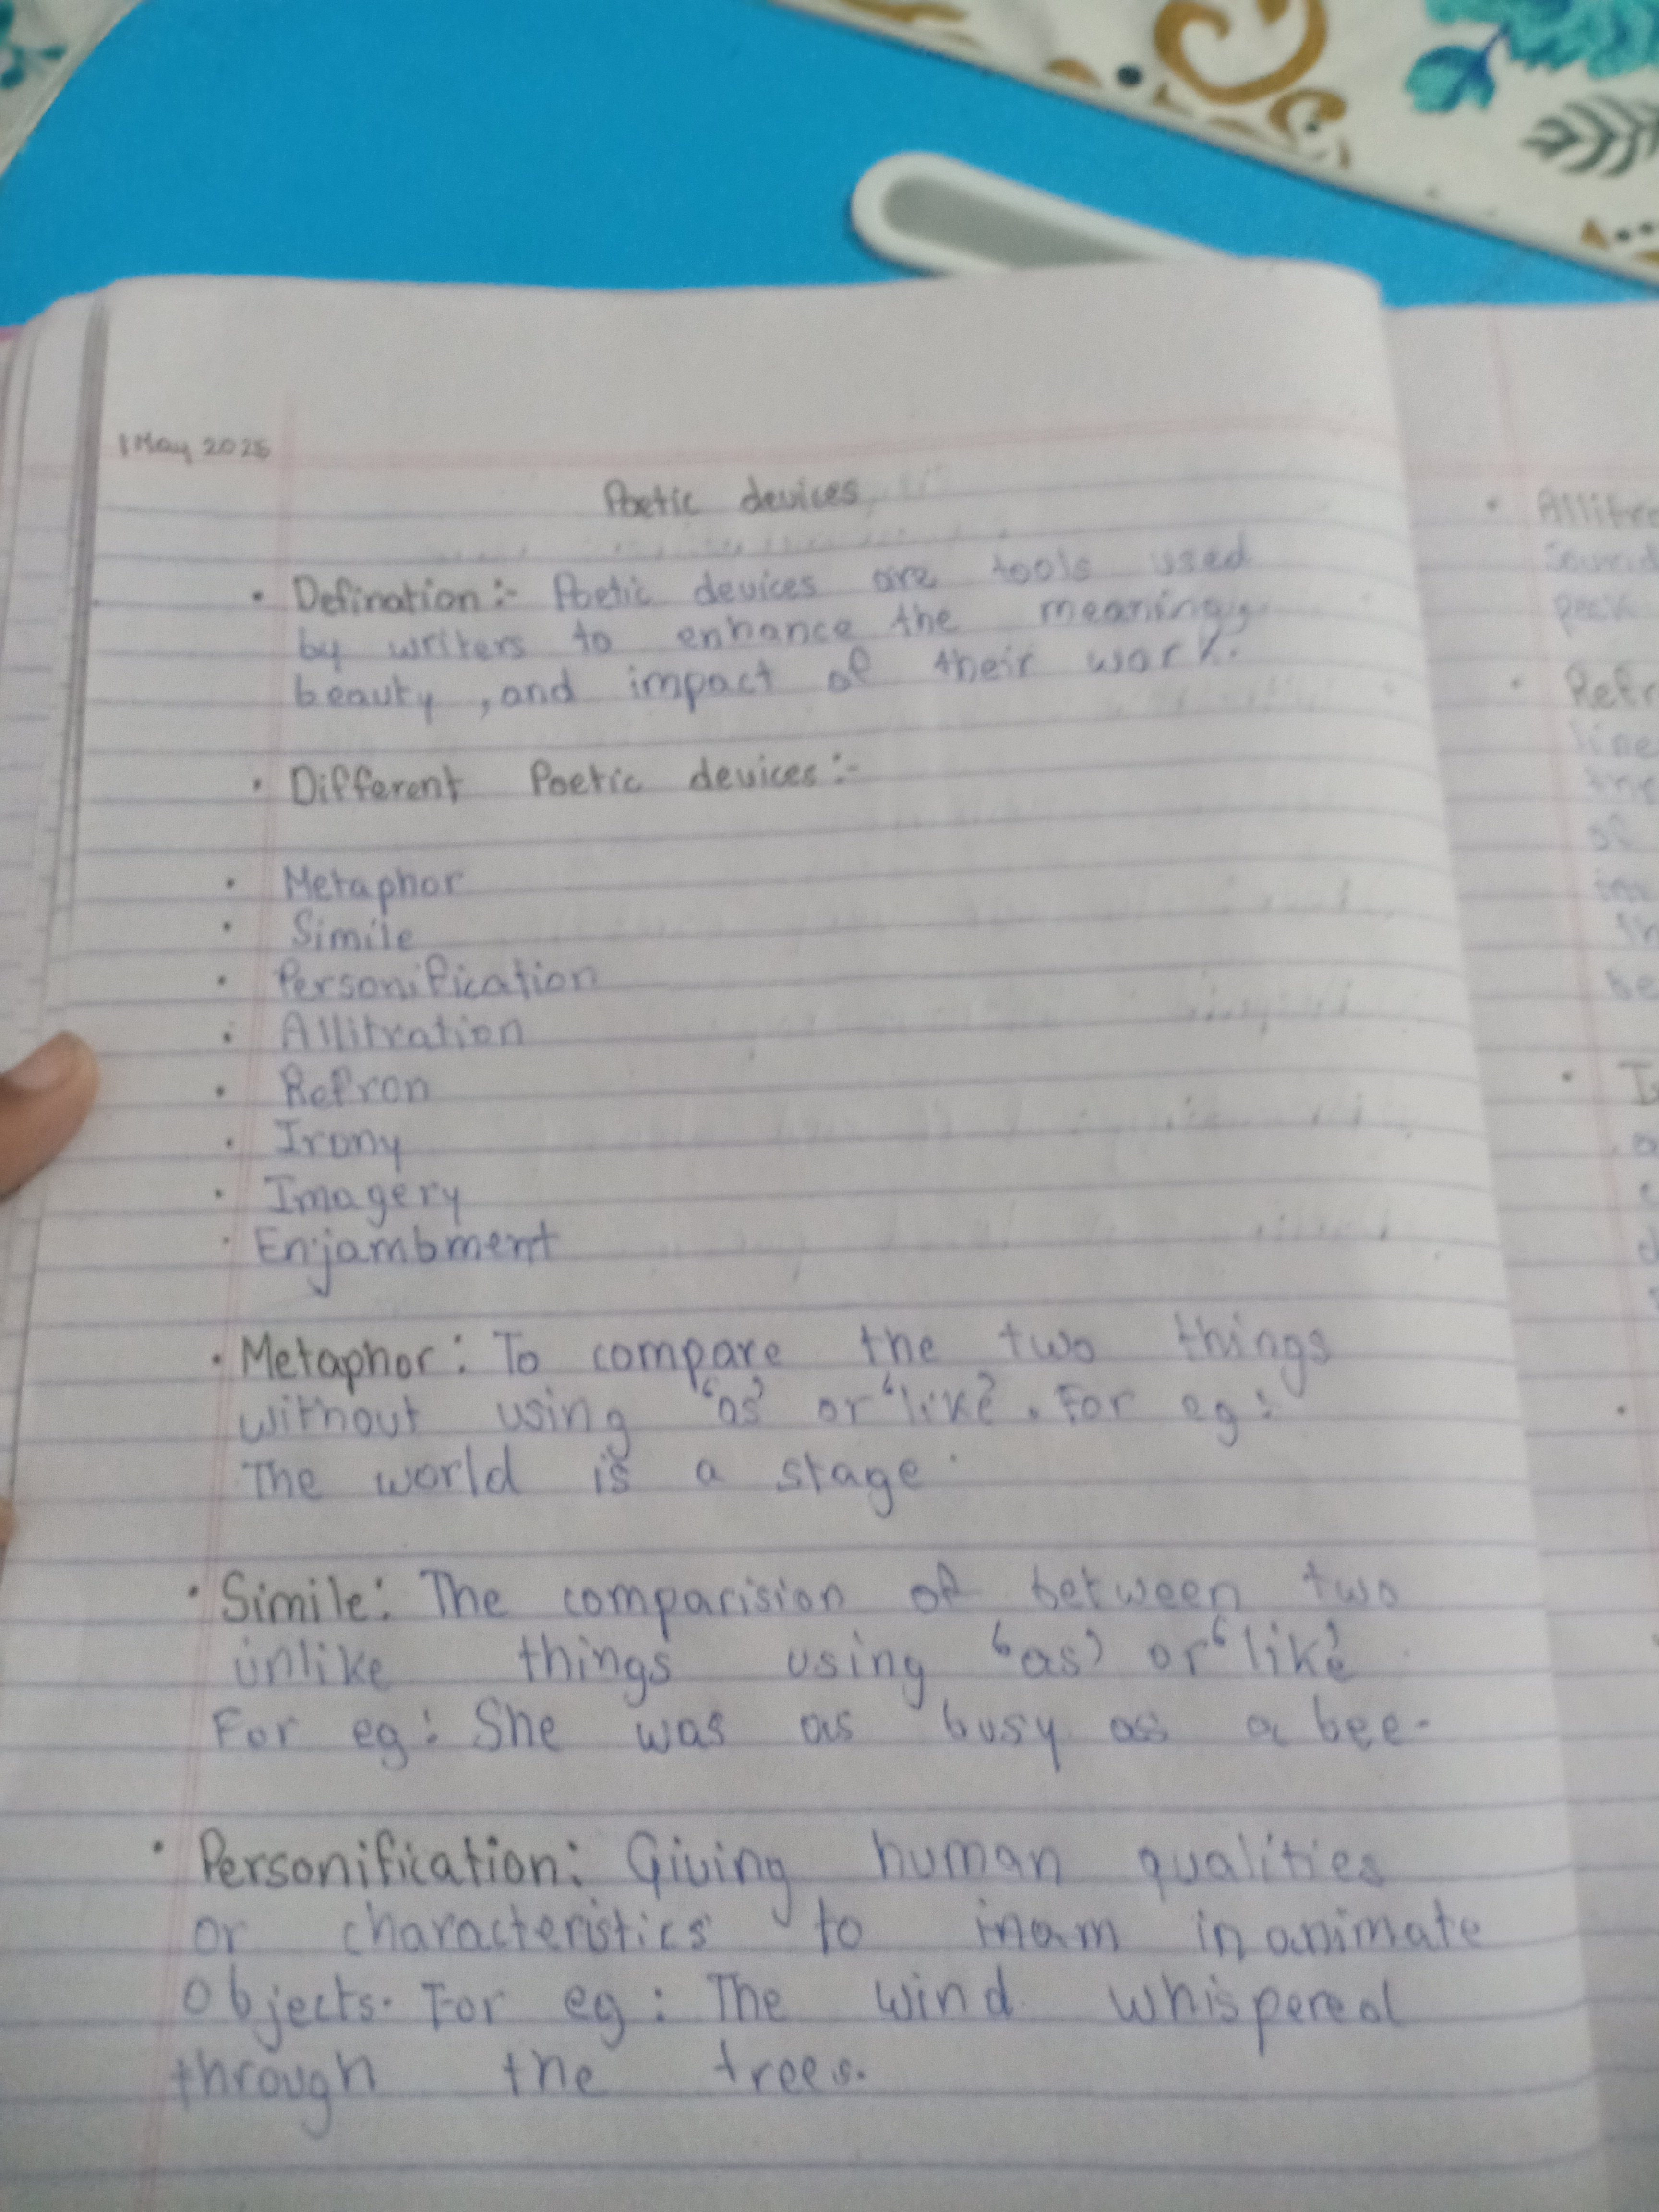 1 May 2025
Poetic devices
• Defination :- Poetic devices are tools used
by writers to enhance the meaning,
beauty , and impact of their work.
• Different Poetic devices :-
• Metaphor
• Simile
• Personification
• Allitration
• Refron
• Irony
• Imagery
• Enjambment
• Metaphor : To compare the two things
without using 'as' or 'like'. For eg :
The world is a stage.
• Simile : The comparision of between two
unlike things using 'as' or 'like'
For eg : She was as busy as a bee.
• Personification : Giving human qualities
or characteristics to inam inanimate
objects. For eg : The wind whispered
through the trees.
• Allitre
sound
• Refr
line
of
be